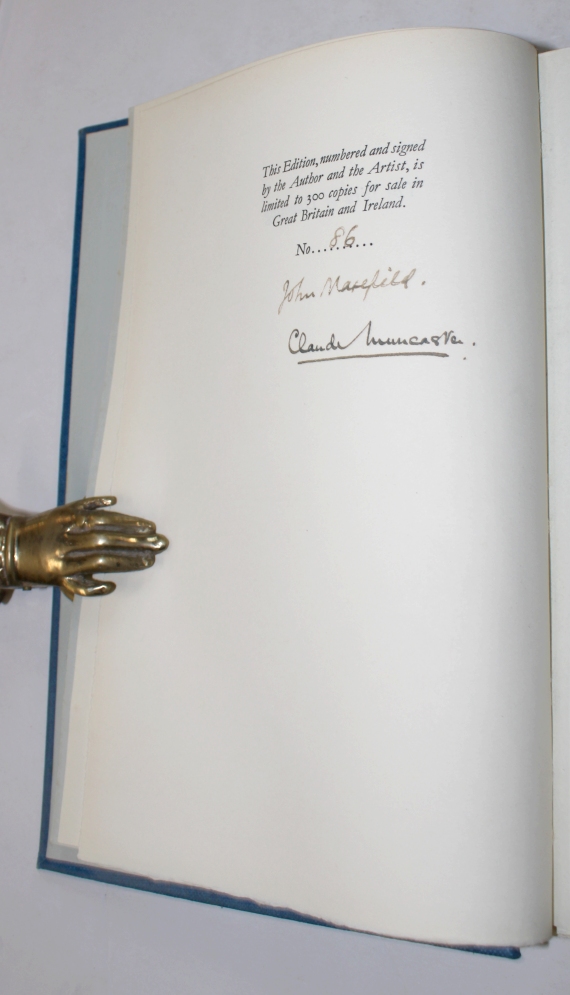 This Edition, numbered and signed
by the Author and the Artist, is
limited to 300 copies for sale in
Great Britain and Ireland.
No....86....
John Masefield.
Claude Muncaster.